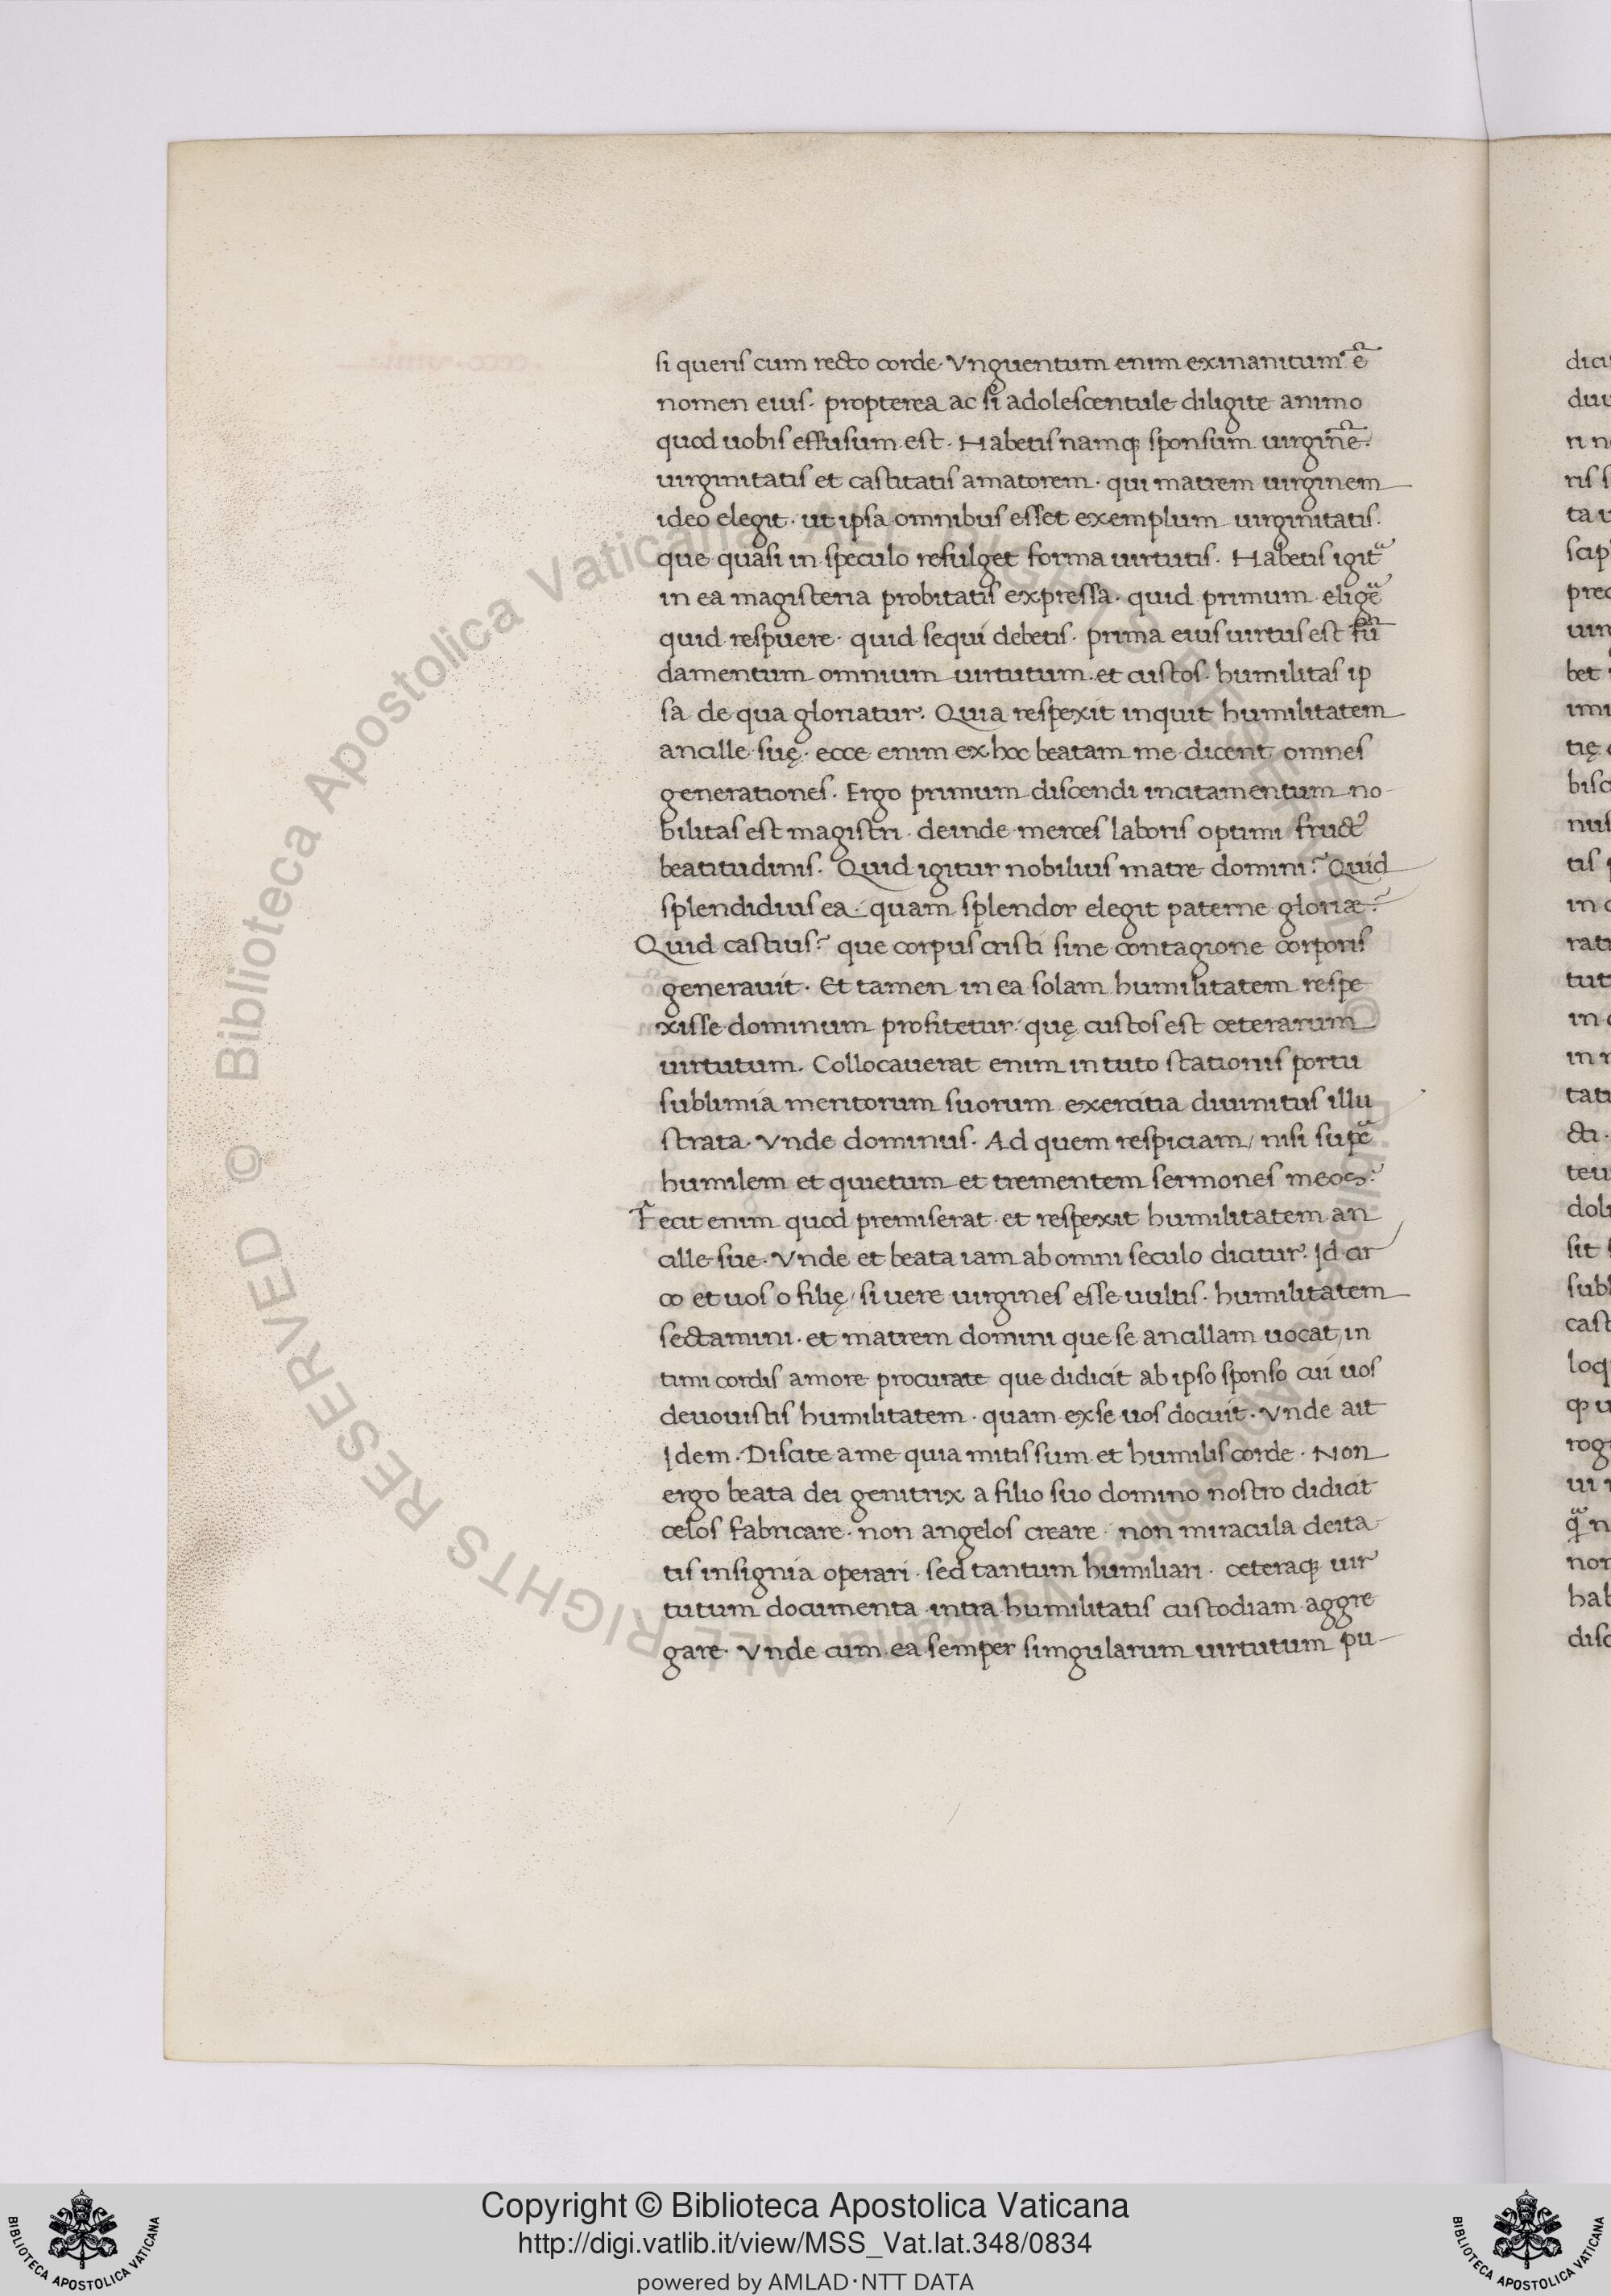 si queris cum recto corde. Vnguentum enim exinanitum ē
nomen eius. propterea ac si adolescentule diligite animo
quod uobis effusum est. Habetis namq; sponsum uirginē.
uirginitatis et castitatis amatorem. qui matrem uirginem
ideo elegit. ut ipsa omnibus esset exemplum uirginitatis.
que quasi in speculo refulget forma uirtutis. Habetis igit᷑
in ea magisteria probitatis expressa. quid primum eligē
quid respuere. quid sequi debetis. prima eius uirtus est fū
damentum omnium uirtutum. et custos. humilitas ip
sa de qua gloriatur. Quia respexit inquit humilitatem
ancille suę. ecce enim ex hoc beatam me dicent omnes
generationes. Ergo primum discendi incitamentum no-
bilitas est magistri. deinde merces laboris optimi fruct᾿
beatitudinis. Quid igitur nobilius matre domini? Quid
splendidius ea. quam splendor elegit paterne gloriæ?
Quid castius? que corpus cristi sine contagione corporis
generauit. Et tamen in ea solam humilitatem respe
xisse dominum profitetur. quę custos est ceterarum
uirtutum. Collocauerat enim in tuto stationis portu
sublimia meritorum suorum exercitia diuinitus illu
strata. Vnde dominus. Ad quem respiciam/ nisi supē
humilem et quietum et trementem sermones meos?
Fecit enim quod premiserat. et respexit humilitatem an
cille sue. Vnde et beata iam ab omni seculo dicitur. Id cir
co et uos o filię/ si uere uirgines esse uultis. humilitatem
sectamini. et matrem domini que se ancillam uocat/ in
timi cordis amore procurate que didicit ab ipso sponso cui uos
deuouistis humilitatem. quam ex se uos docuit. Vnde ait
Idem. Discite a me quia mitis sum et humilis corde. Non
ergo beata dei genitrix a filio suo domino nostro didicit
celos fabricare. non angelos creare. non miracula deita
tis insignia operari. sed tantum humiliari. ceteraq; uir
tutum documenta intra humilitatis custodiam aggre
gare. Vnde cum ea semper simgularum uirtutum pu-
© Biblioteca Apostolica Vaticana ALL RIGHTS RESERVED
Copyright © Biblioteca Apostolica Vaticana
http://digi.vatlib.it/view/MSS_Vat.lat.348/0834
powered by AMLAD·NTT DATA
BIBLIOTECA APOSTOLICA VATICANA
BIBLIOTECA APOSTOLICA VATICANA